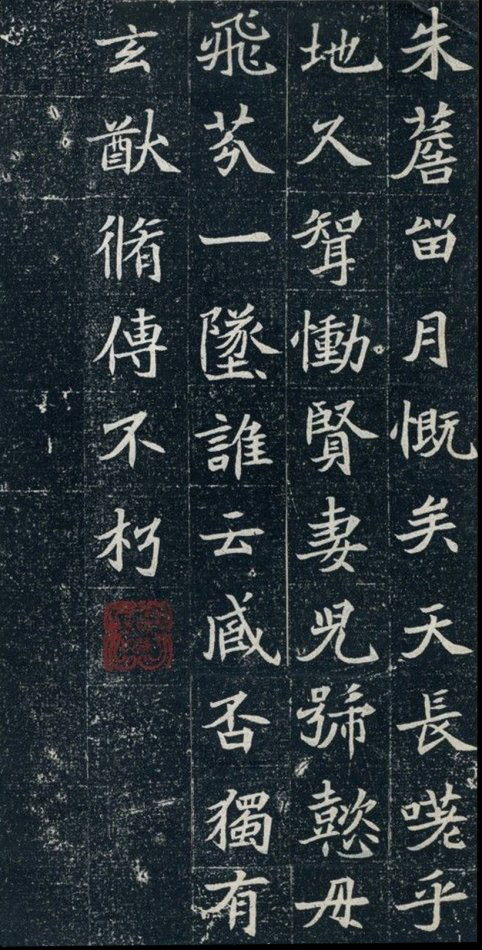 朱薝留月慨矣天長嗟乎
地久聟慟賢妻兒號懿母
飛芬一墜誰云臧否獨有
玄猷脩傳不朽